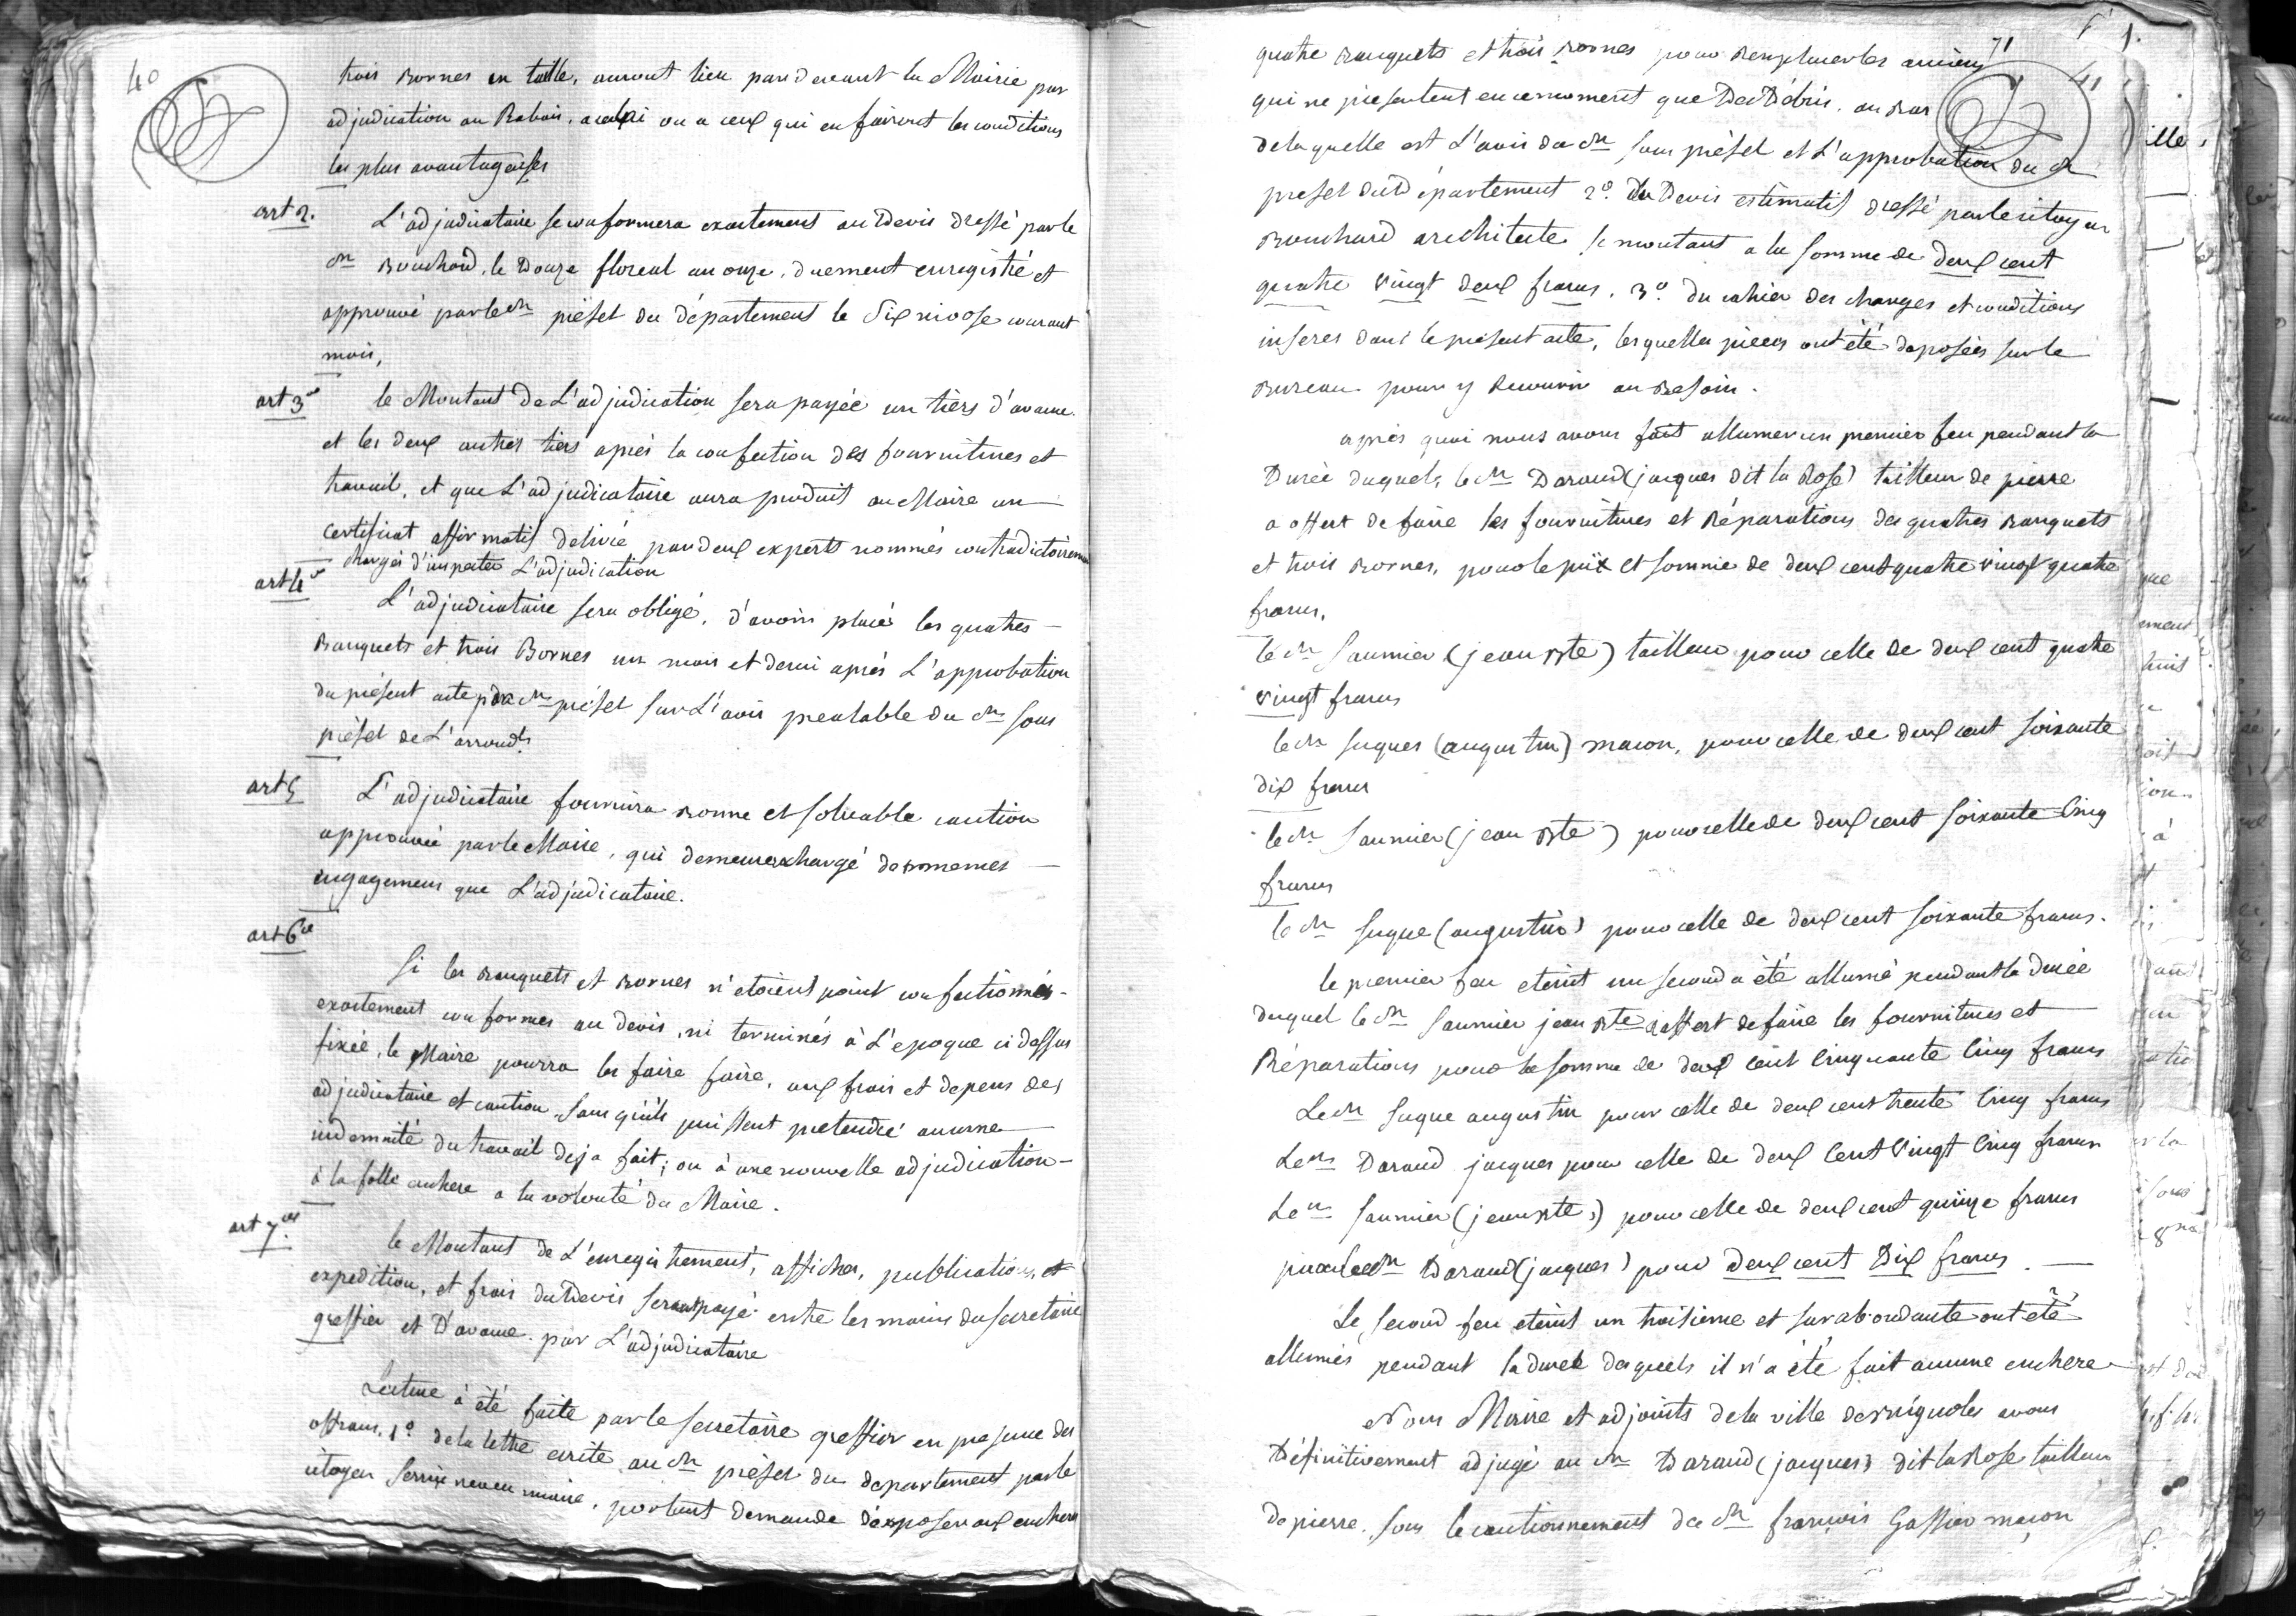 40
trois Bornes en taille, auront lieu par devant la Mairie par
adjudication au Rabais, a celui ou a ceux qui en fairont les conditions
les plus avantageuses
art 2.
L'adjudicataire se conformera exactement au Devis dressé par le
cn Bouchard, le Douze floreal an onze, duement enregistré et
approuvé par le cn préfet du département le Six nivose courant
mois,
art 3e
le Montant de L'adjudication sera payée un tiers d'avance
et les deux autres tiers après la confection des fournitures et
travail, et que L'adjudicataire aura produit au Maire un
certificat affirmatif delivré par deux experts nommés contradictoirement
chargés d'inspecter L'adjudication
art 4e
L'adjudicataire sera obligé, d'avoir placé les quatres
Banquets et trois Bornes un mois et demi après L'approbation
du présent acte par le cn préfet sur L'avis prealable du cn sous
préfet de L'arrondt.
art 5
L'adjudicataire fournira Bonne et solvable caution
approuvée par le Maire, qui demeurera chargé des memes
engagemens que L'adjudicataire.
art 6e
Si les Banquets et Bornes n'etoient point confectionnés
exactement conformes au devis, ni terminés à L'epoque ci dessus
fixée, le Maire pourra les faire faire, aux frais et depens des
adjudicataire et caution, sans qu'ils puissent pretendre aucune
indemnité du travail deja fait; ou à une nouvelle adjudication
à la folle enchere a la volonté du Maire.
art 7e.
le Montant de L'enregistrement, affiches, publications, et
expedition, et frais du Devis seront payé entre les mains du secretaire
greffier et D'avance par L'adjudicataire
Lecture à été faite par le secretaire greffier en presence des
offrans, 1o de la lettre ecrite au cn préfet du departement par le
citoyen neveu maire, portant demande d'exposer aux encheres
71
41
quatre Banquets et trois Bornes pour Remplacer les anciens
qui ne presentent en ce moment que Des Débris, au Bas
de laquelle est L'avis du cn sous préfet et L'approbation du cn
prefet du Département 2o. Du Devis estimatif dressé par le citoyen
Bouchard architecte se montant a la somme de deux cent
quatre Vingt deux francs, 3o. du cahier des charges et conditions
inseres dans le present acte, lesquelles pieces ont été deposées sur le
Bureau pour y Recourir au Besoin.
après quoi nous avons fait allumer un premier feu pendant la
Durée duquel, le cn Daraud (jacques Dit la Rose) tailleur de pierre
a offert de faire les fournitures et Réparations des quatres Banquets
et trois Bornes, pour le prix et somme de deux cent quatre vingt quatre
francs,
le cn Saumier (jean Bte) tailleur pour celle de deux cent quatre
vingt francs
le cn Suques (augustin) macon, pour celle de deux cent soixante
dix francs
le cn Saumier (jean Bte) pour celle de deux cent soixante Cinq
francs
le cn Suque (augustin) pour celle de deux cent soixante francs.
le premier feu eteint un second a été allumé pendant la durée
duquel le cn Saumier jean Bte a offert de faire les fournitures et
Réparations pour la somme de deux cent Cinquante Cinq francs
Le cn Suque augustin pour celle de deux cent trente Cinq francs
Le cn Daraud jacques pour celle de deux Cent Vingt Cinq francs
Le cn Saumier (jean Bte) pour celle de deux cent quinze francs
par le cn Daraud (jacques) pour deux cent Dix francs.
Le second feu eteint un troisieme et surabondante ont été
allumés pendant la durée desquels il n'a été fait aucune enchere
Nous Maire et adjoints de la ville de Brignoles avons
Définitivement adjugé au cn Daraud (jacques) dit la Rose tailleur
de pierre, sous le cautionnement du cn françois Gassier maçon